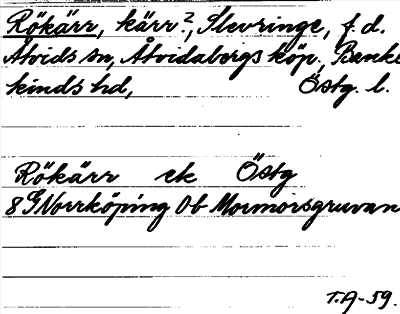 Rökärr, kärr?, Slevringe, f.d.
Åtvids sn, Åtvidabergs köp., Banke
kinds hd, Östg. l.
Rökärr ek Östg
8G Norrköping 0b Mormorsgruvan
T.A-59.